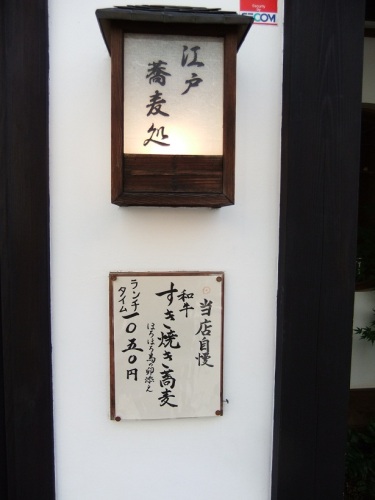 江戸
蕎麦処
当店自慢
和牛
すき焼き蕎麦
ほろほろ鳥の卵添え
ランチ
タイム
一〇五〇円